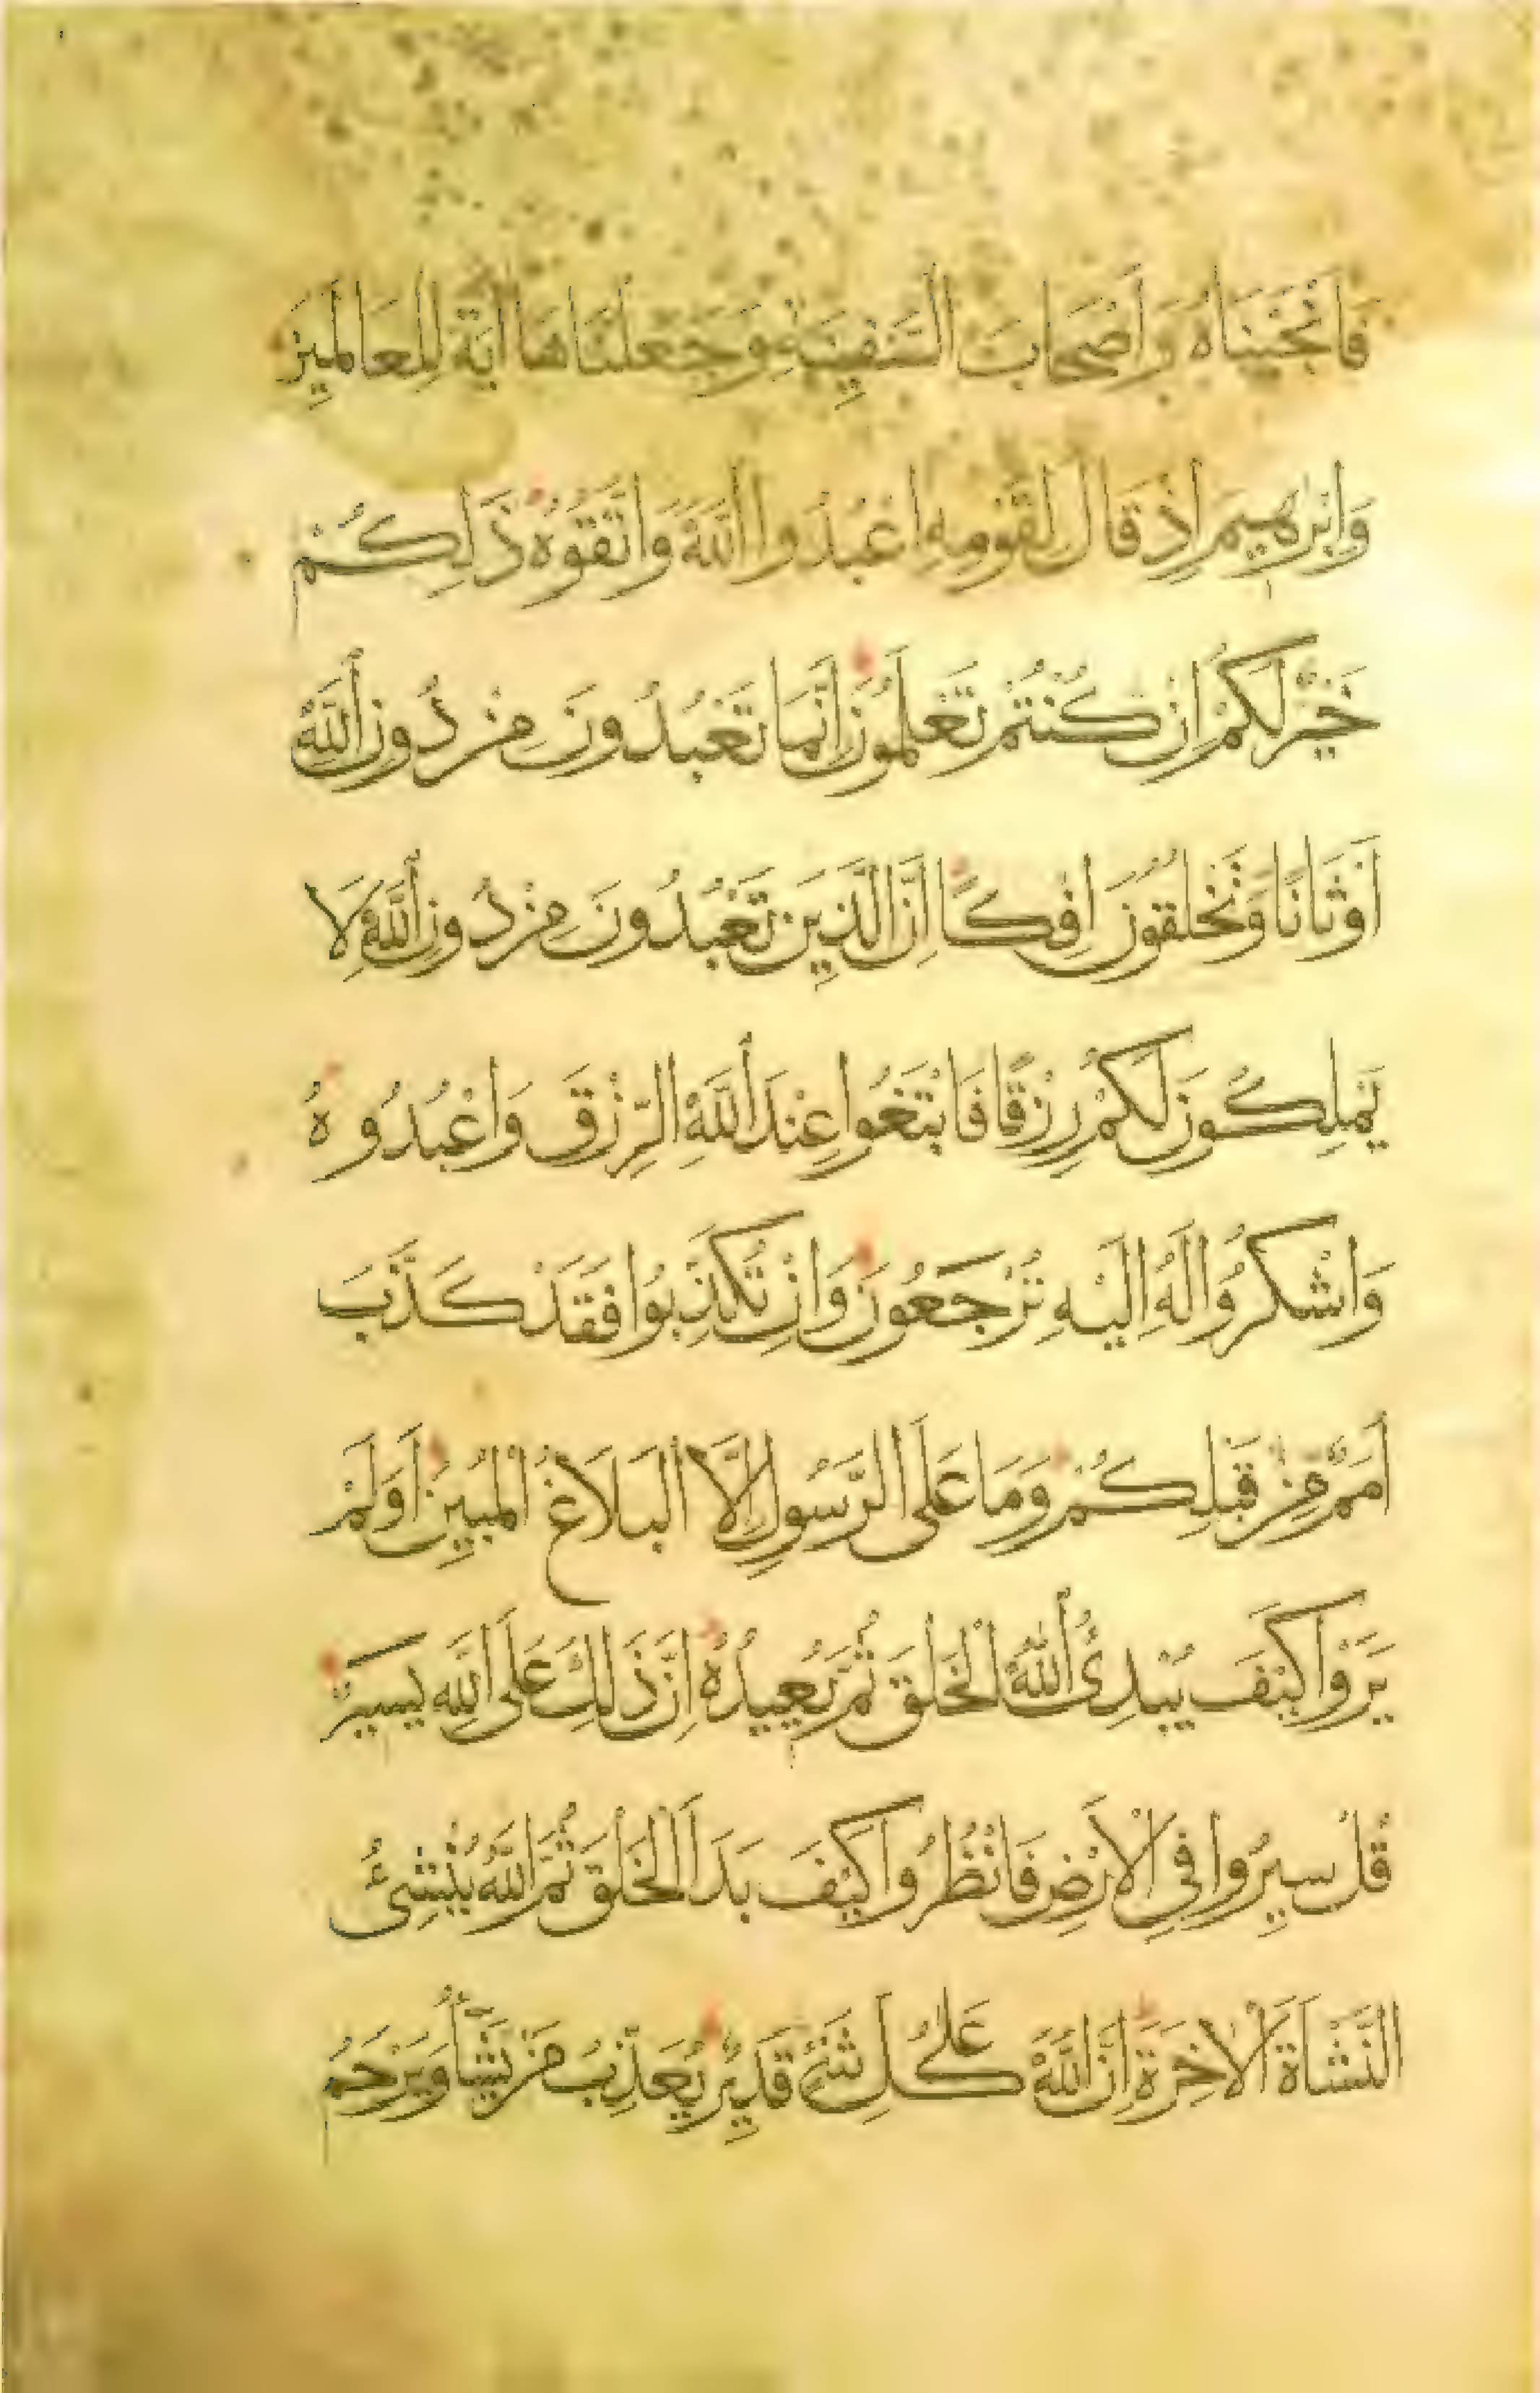 فَاَنْجَيْنَاهُ وَاَصْحَابَ السَّفِينَةِ وَجَعَلْنَاهَا اٰيَةً لِلْعَالَمِينَ
وَاِبْرٰهِيمَ اِذْ قَالَ لِقَوْمِهِ اعْبُدُوا اللّٰهَ وَاتَّقُوهُ ذَلِكُمْ
خَيْرٌ لَكُمْ اِنْ كُنْتُمْ تَعْلَمُونَ اِنَّمَا تَعْبُدُونَ مِنْ دُونِ اللّٰهِ
اَوْثَانًا وَتَخْلُقُونَ اِفْكًا اِنَّ الَّذِينَ تَعْبُدُونَ مِنْ دُونِ اللّٰهِ لَا
يَمْلِكُونَ لَكُمْ رِزْقًا فَابْتَغُوا عِنْدَ اللّٰهِ الرِّزْقَ وَاعْبُدُوهُ
وَاشْكُرُوا لَهُ اِلَيْهِ تُرْجَعُونَ وَاِنْ تُكَذِّبُوا فَقَدْ كَذَّبَ
اُمَمٌ مِنْ قَبْلِكُمْ وَمَا عَلَى الرَّسُولِ اِلَّا الْبَلَاغُ الْمُبِينُ اَوَلَمْ
يَرَوْا كَيْفَ يُبْدِئُ اللّٰهُ الْخَلْقَ ثُمَّ يُعِيدُهُ اِنَّ ذَلِكَ عَلَى اللّٰهِ يَسِيرٌ
قُلْ سِيرُوا فِي الْاَرْضِ فَانْظُرُوا كَيْفَ بَدَاَ الْخَلْقَ ثُمَّ اللّٰهُ يُنْشِئُ
النَّشْاَةَ الْاٰخِرَةَ اِنَّ اللّٰهَ عَلٰى كُلِّ شَيْءٍ قَدِيرٌ يُعَذِّبُ مَنْ يَشَاءُ وَيَرْحَمُ